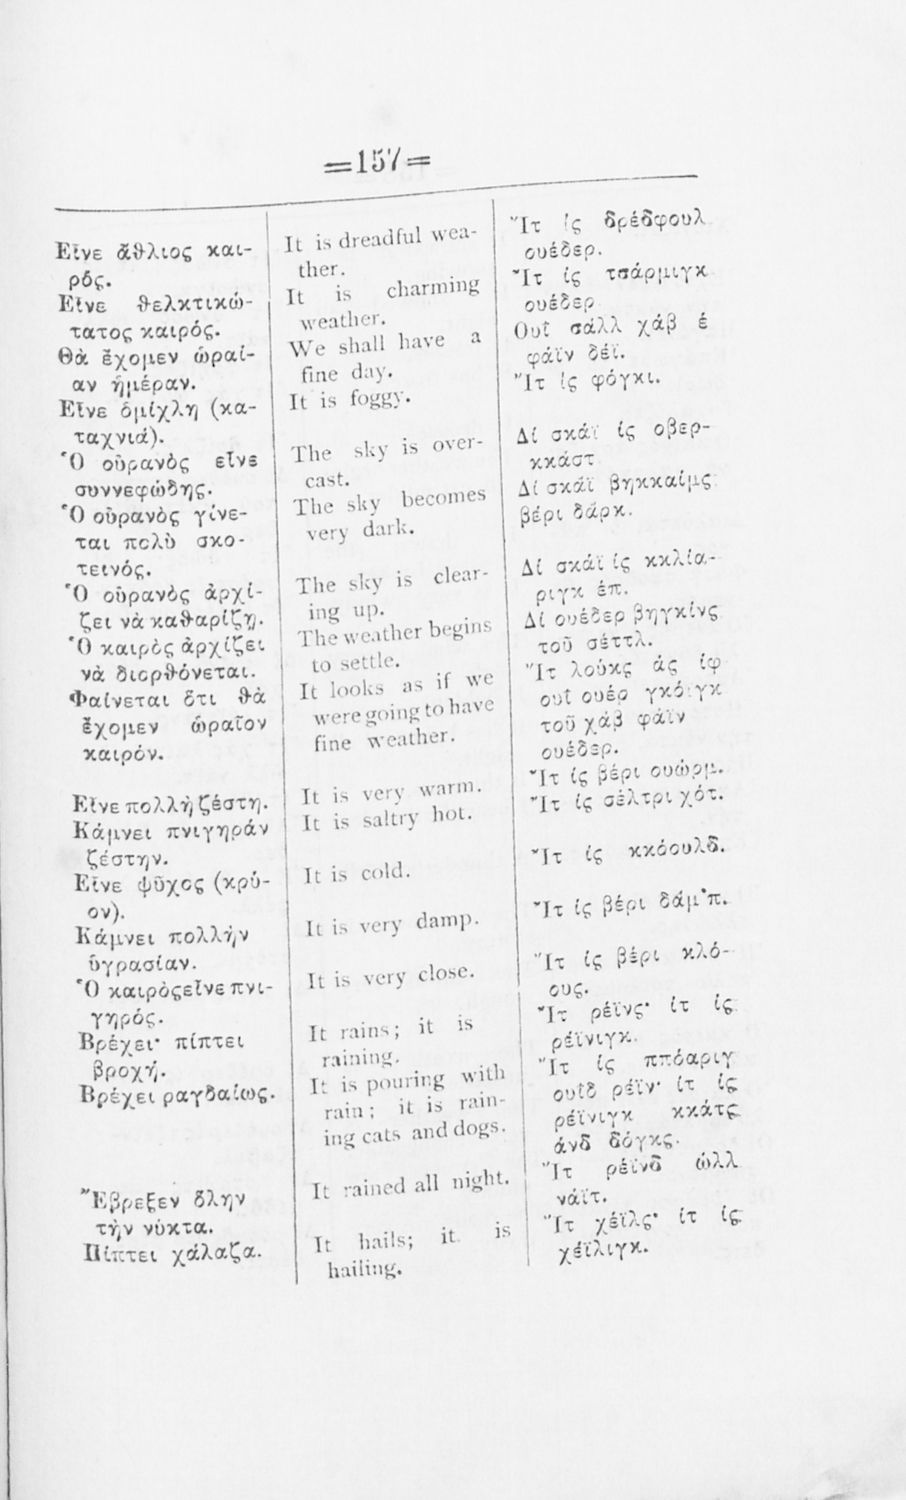 =157=
Εἶνε ἄθλιος και-
ρός.
Εἶνε θελκτικώ-
τατος καιρός.
Θὰ ἔχομεν ὡραί-
αν ἡμέραν.
Εἶνε ὁμίχλη (κα-
ταχνιά).
Ὁ οὐρανὸς εἶνε
συννεφώδης.
Ὁ οὐρανὸς γίνε-
ται πολὺ σκο-
τεινός.
Ὁ οὐρανὸς ἀρχί-
ζει νὰ καθαρίζῃ.
Ὁ καιρὸς ἀρχίζει
νὰ διορθόνεται.
Φαίνεται ὅτι θὰ
ἔχομεν ὡραῖον
καιρόν.
Εἶνε πολλὴ ζέστη.
Κάμνει πνιγηρὰν
ζέστην.
Εἶνε ψῦχος (κρύ-
ον).
Κάμνει πολλὴν
ὑγρασίαν.
Ὁ καιρὸς εἶνε πνι-
γηρός.
Βρέχει· πίπτει
βροχή.
Βρέχει ραγδαίως.
Ἔβρεξεν ὅλην
τὴν νύκτα.
Πίπτει χάλαζα.
It is dreadful wea-
ther.
It is charming
weather.
We shall have a
fine day.
It is foggy.
The sky is over-
cast.
The sky becomes
very dark.
The sky is clear-
ing up.
The weather begins
to settle.
It looks as if we
were going to have
fine weather.
It is very warm.
It is saltry hot.
It is cold.
It is very damp.
It is very close.
It rains; it is
raining.
It is pouring with
rain; it is rain-
ing cats and dogs.
It rained all night.
It hails; it is
hailing.
Ἴτ ἰς δρέδφουλ
ουέδερ.
Ἴτ ἰς τσάρμιγκ
ουέδερ
Ουῒ σάλλ χάβ ἐ
φάϊν δέϊ.
Ἴτ ἰς φόγκι.
Δί σκάϊ ἰς οβερ-
κκάστ
Δί σκάϊ βηκκαίμς
βέρι δάρκ.
Δί σκάϊ ἰς κκλία-
ριγκ ἐπ.
Δί ουέδερ βηγκίνς
τοῦ σέττλ.
Ἴτ λούκς ἀς ἰφ
ουῒ ουέρ γκόιγκ
τοῦ χάβ φάϊν
ουέδερ.
Ἴτ ἰς βέρι ουώρμ.
Ἴτ ἰς σέλτρι χότ.
Ἴτ ἰς κκόουλδ.
Ἴτ ἰς βέρι δάμ'π.
Ἴτ ἰς βέρι κλό-
ους.
Ἴτ ρέϊνς· ἰτ ἰς
ρέϊνιγκ.
Ἴτ ἰς ππόαριγ
ουῒδ ρέϊν· ἰτ ἰς
ρέϊνιγκ κκάτς
ἀνδ δόγκς.
Ἴτ ρέϊνδ ὦλλ
νάϊτ.
Ἴτ χέϊλς· ἰτ ἰς
χέϊλιγκ.